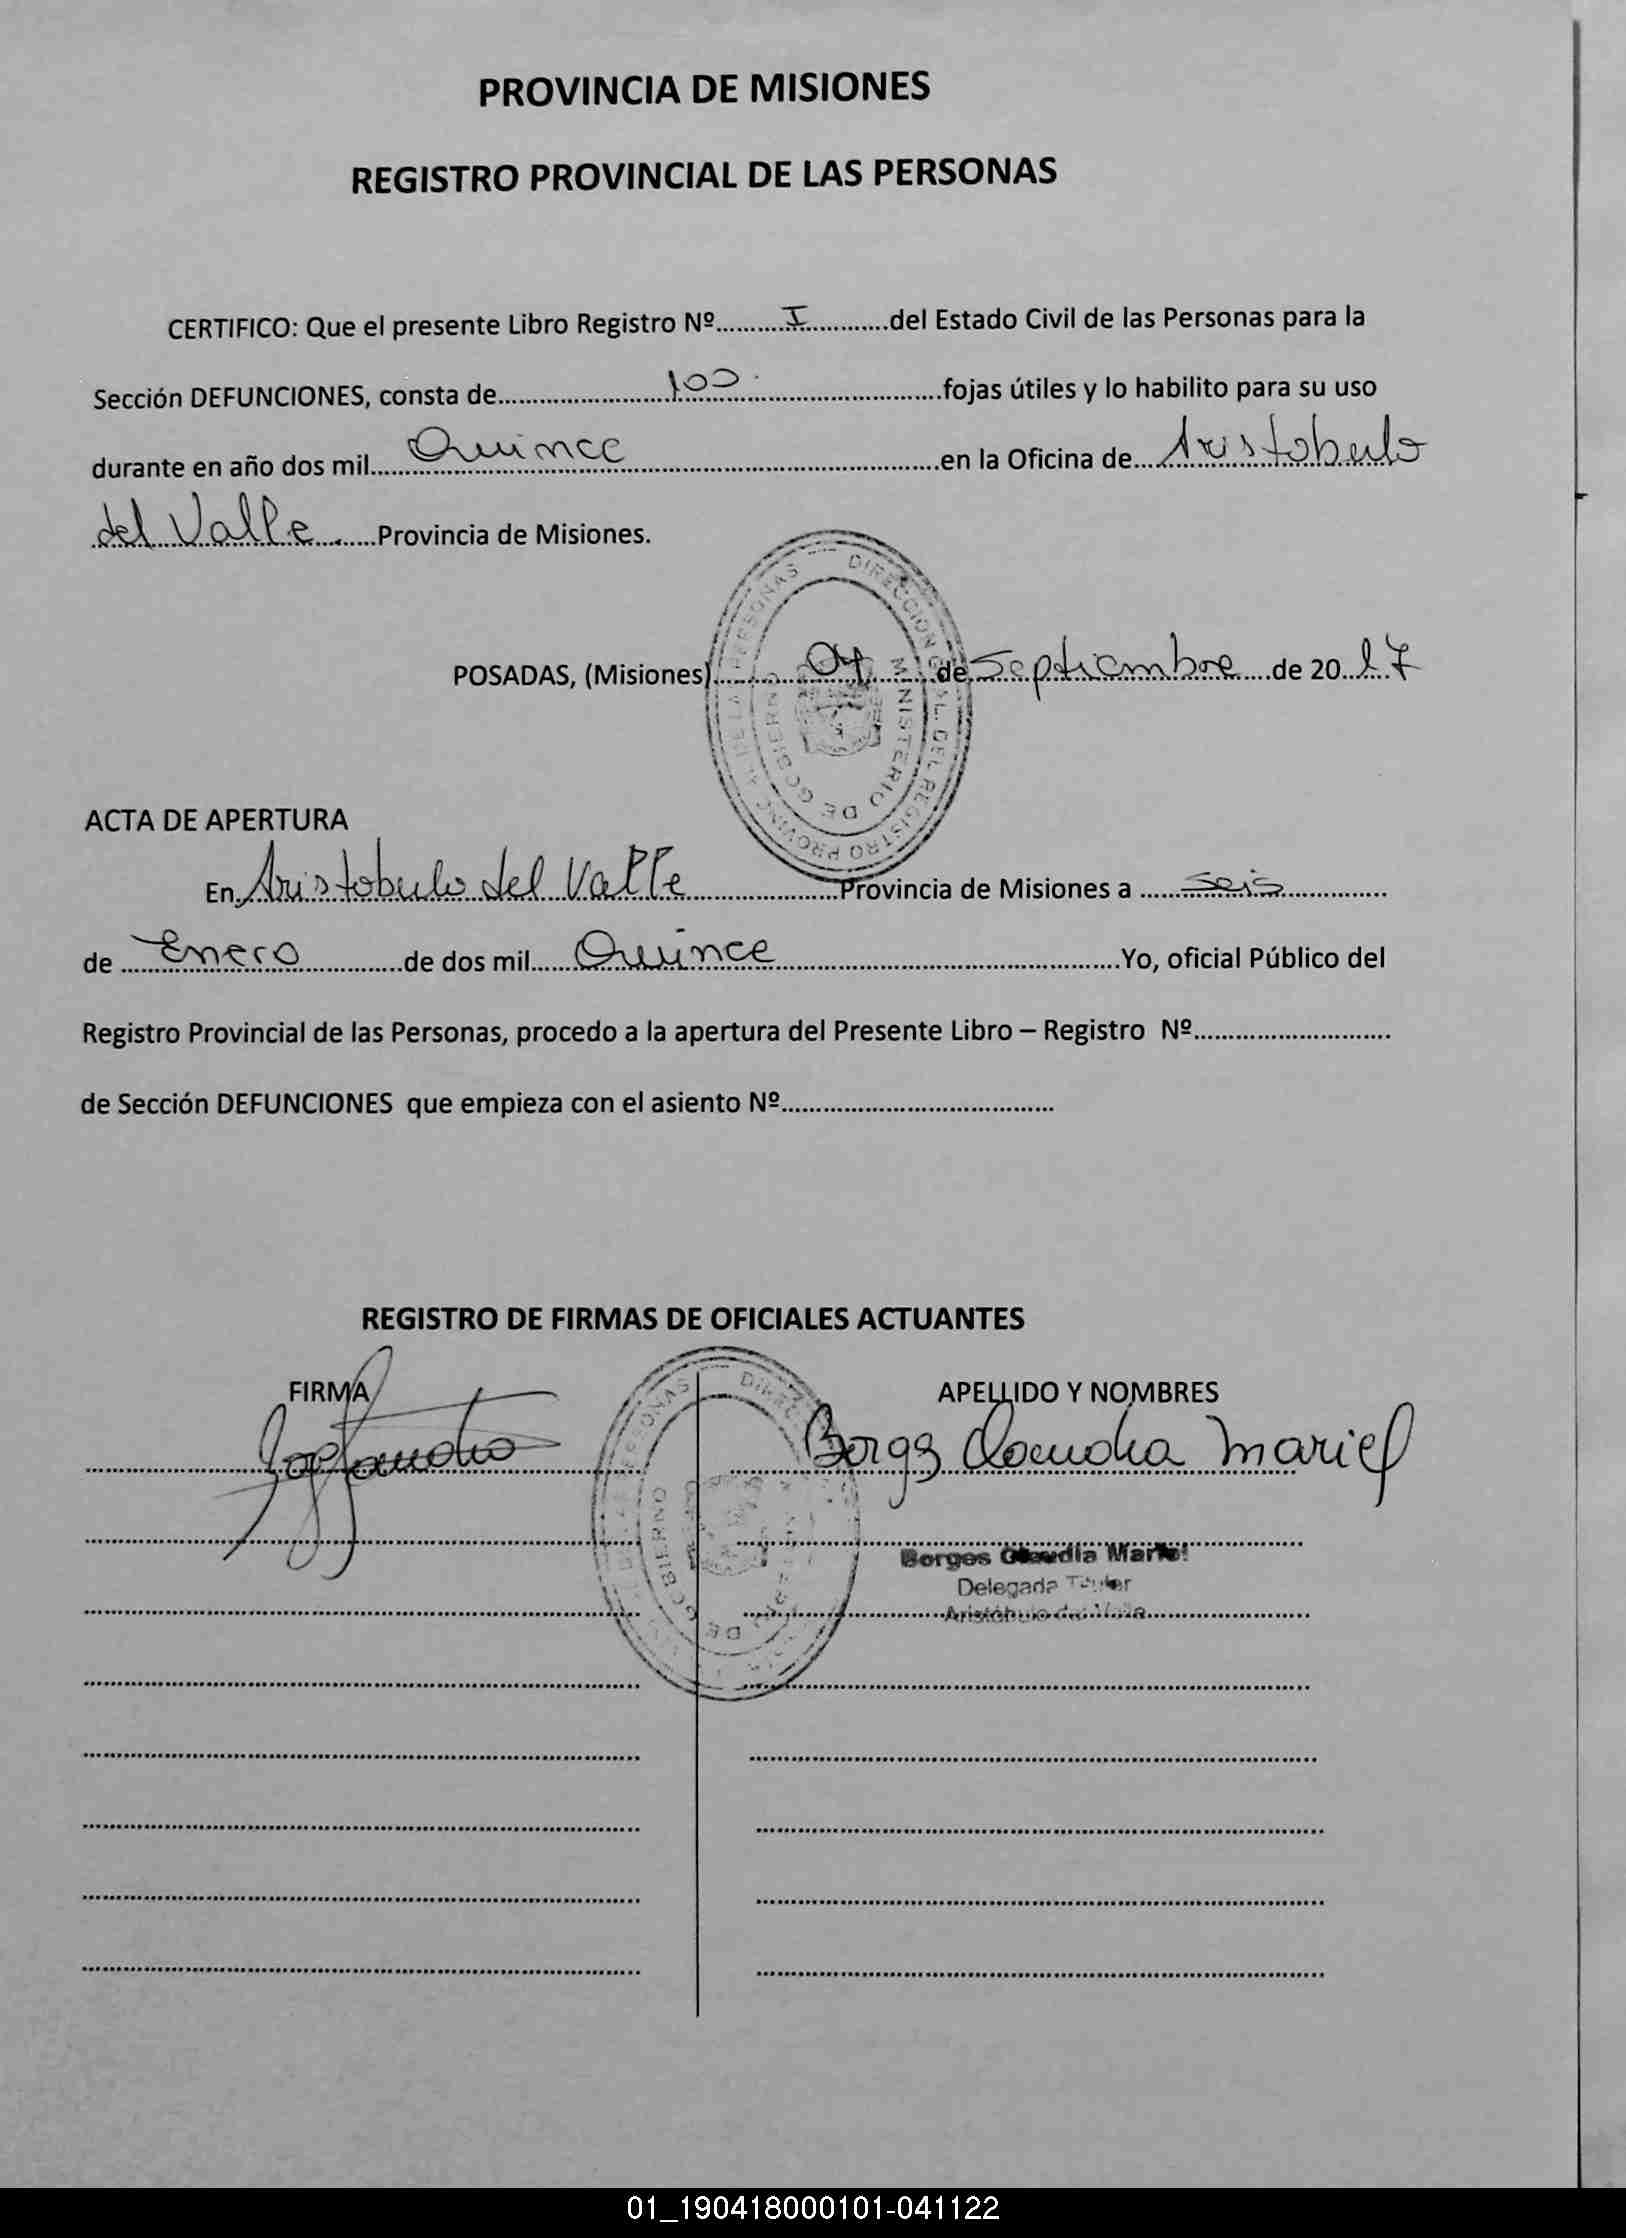 PROVINCIA DE MISIONES
REGISTRO PROVINCIAL DE LAS PERSONAS
CERTIFICO: Que el presente Libro Registro Nº..........I............del Estado Civil de las Personas para la
Sección DEFUNCIONES, consta de..........100..........fojas útiles y lo habilito para su uso
durante en año dos mil....Quince..........en la Oficina de...Aristobulo
del Valle..........Provincia de Misiones.
DIRECCION GRAL. DEL REGISTRO PROVINCIAL DE LAS PERSONAS
MINISTERIO DE GOBIERNO
POSADAS, (Misiones)..........04..........de Septiembre.....de 20..17
ACTA DE APERTURA
En Aristobulo del Valle..........Provincia de Misiones a .....seis..........
de .....Enero..........de dos mil.....Quince..........Yo, oficial Público del
Registro Provincial de las Personas, procedo a la apertura del Presente Libro – Registro Nº..........
de Sección DEFUNCIONES que empieza con el asiento Nº..........
REGISTRO DE FIRMAS DE OFICIALES ACTUANTES
FIRMA APELLIDO Y NOMBRES
Borges Claudia Mariel
Borges Claudia Mariel
Delegada Titular
Aristóbulo del Valle
01_190418000101-041122